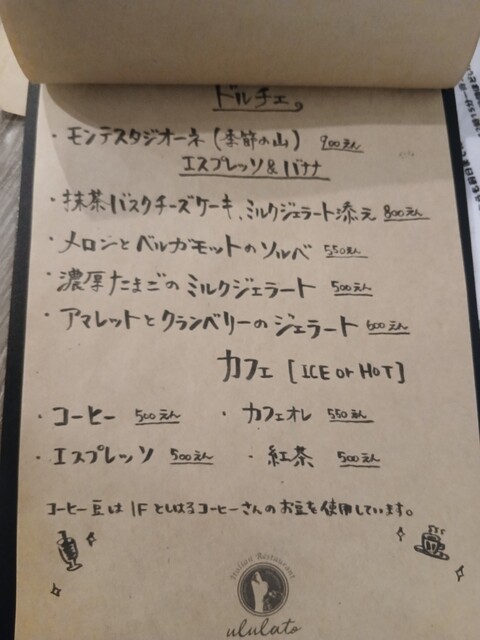 ドルチェ。
・モンテスタジオーネ(季節の山) 900えん
エスプレッソ&バナナ
・抹茶バスクチーズケーキ、ミルクジェラート添え 800えん
・メロンとベルガモットのソルベ 550えん
・濃厚たまごのミルクジェラート 500えん
・アマレットとクランベリーのジェラート 600えん
カフェ [ICE or HOT]
・コーヒー 500えん ・カフェオレ 550えん
・エスプレッソ 500えん ・紅茶 500えん
コーヒー豆は1Fとしはるコーヒーさんのお豆を使用しています。
Italian Restaurant
ululato